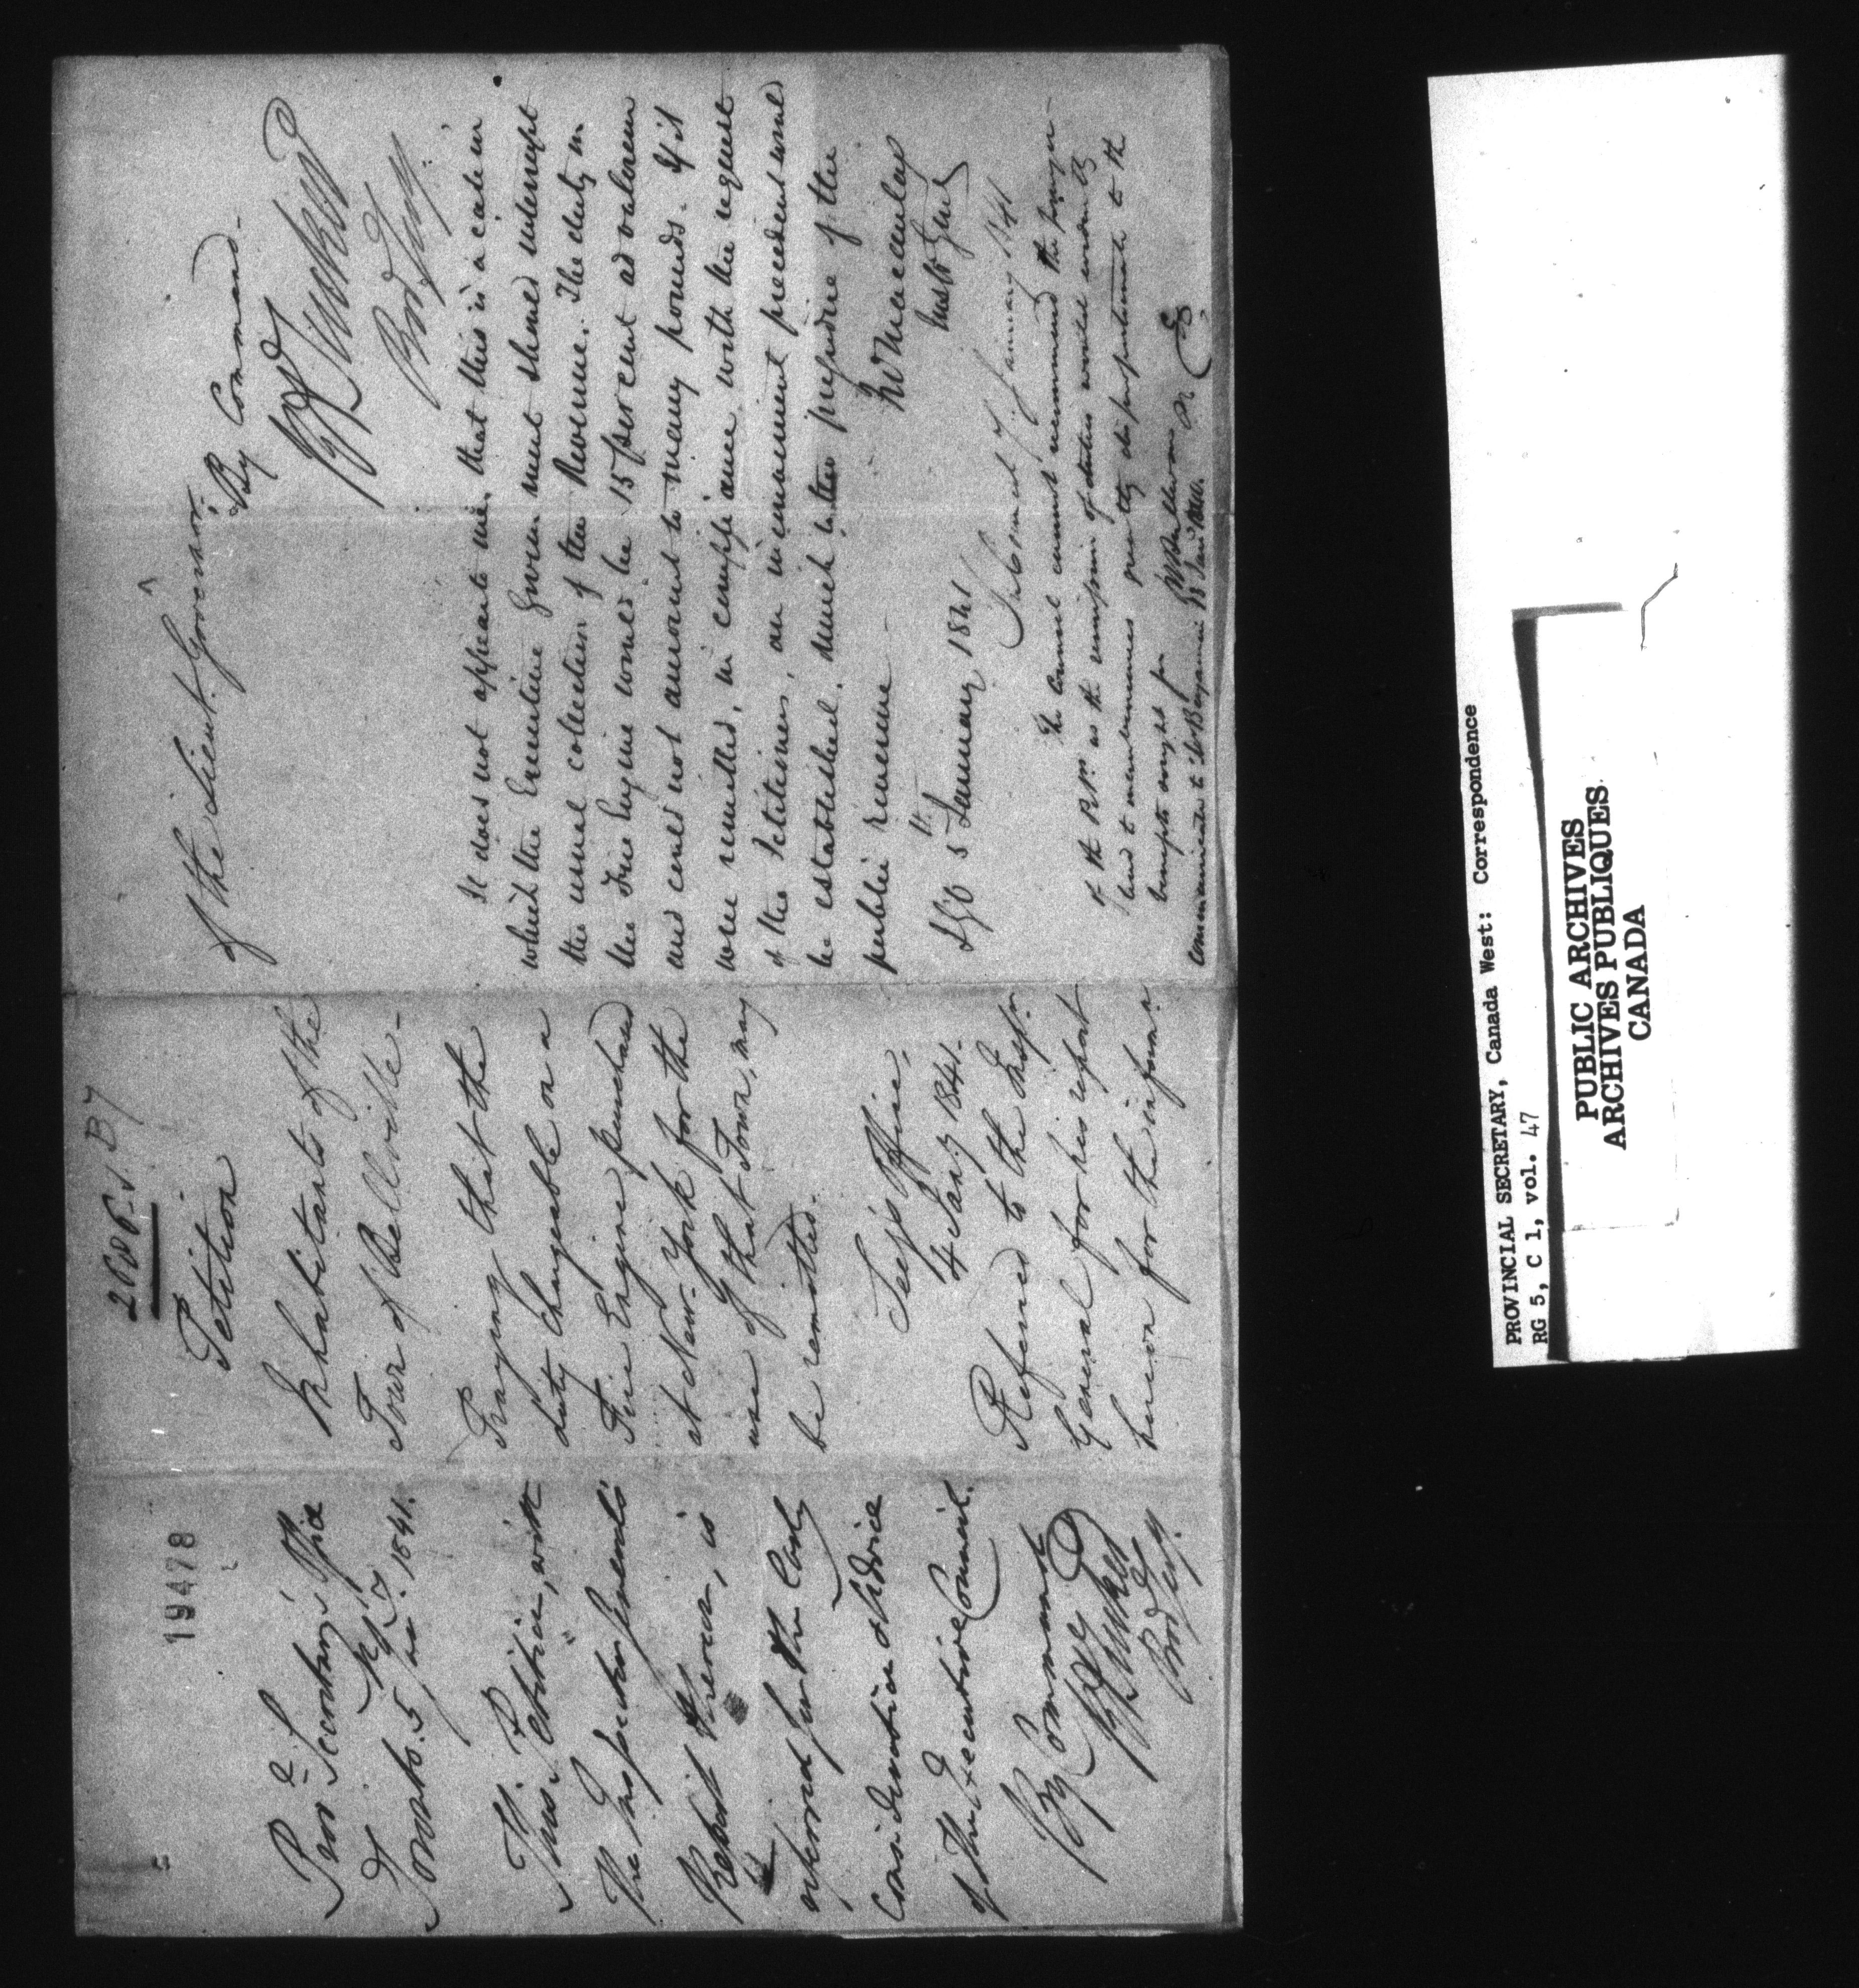 19478
Prov.l Secretary's Office
Toronto. 5 Jan. 1841.
This Petition, with
the Inspector General's
Report thereon, is
referred for the
consideration & advice
of the Executive Council.
By Command
Prov Secy.
2686.
Petition
Inhabitants of the
Town of Bellville-
Praying that the
duty chargeable on a
Fire Engine purchased
at New-York for the
use of that Town, may
be remitted.
Secy's Office,
4 Jany 1841.
Referred to the Insp.r
General for his report
hereon for the informn.
of the Lieut. Governor.
By Command-
Prov Secy.
It does not appear to me, that this is a case in
which the Executive Government should interrupt
the usual collection of the Revenue. The duty on
the Fire Engine would be 15 per cent ad valorem
and could not amount to many pounds. If it
were remitted, in compliance with the request
of the Petitioners, an inconvenient precedent would
be established, much to the prejudice of the
public revenue -
R W Macaulay
Insp Genl
IGO 5th January 1841
In Council 7. January 1841
The Council cannot recommend the prayer
of the Petn. as the remission of duties would evidently
lead to inconveniences greatly disproportionate to the
benefits sought for
communicated to
PROVINCIAL SECRETARY, Canada West: Correspondence
RG 5, C 1, vol. 47
PUBLIC ARCHIVES
ARCHIVES PUBLIQUES
CANADA